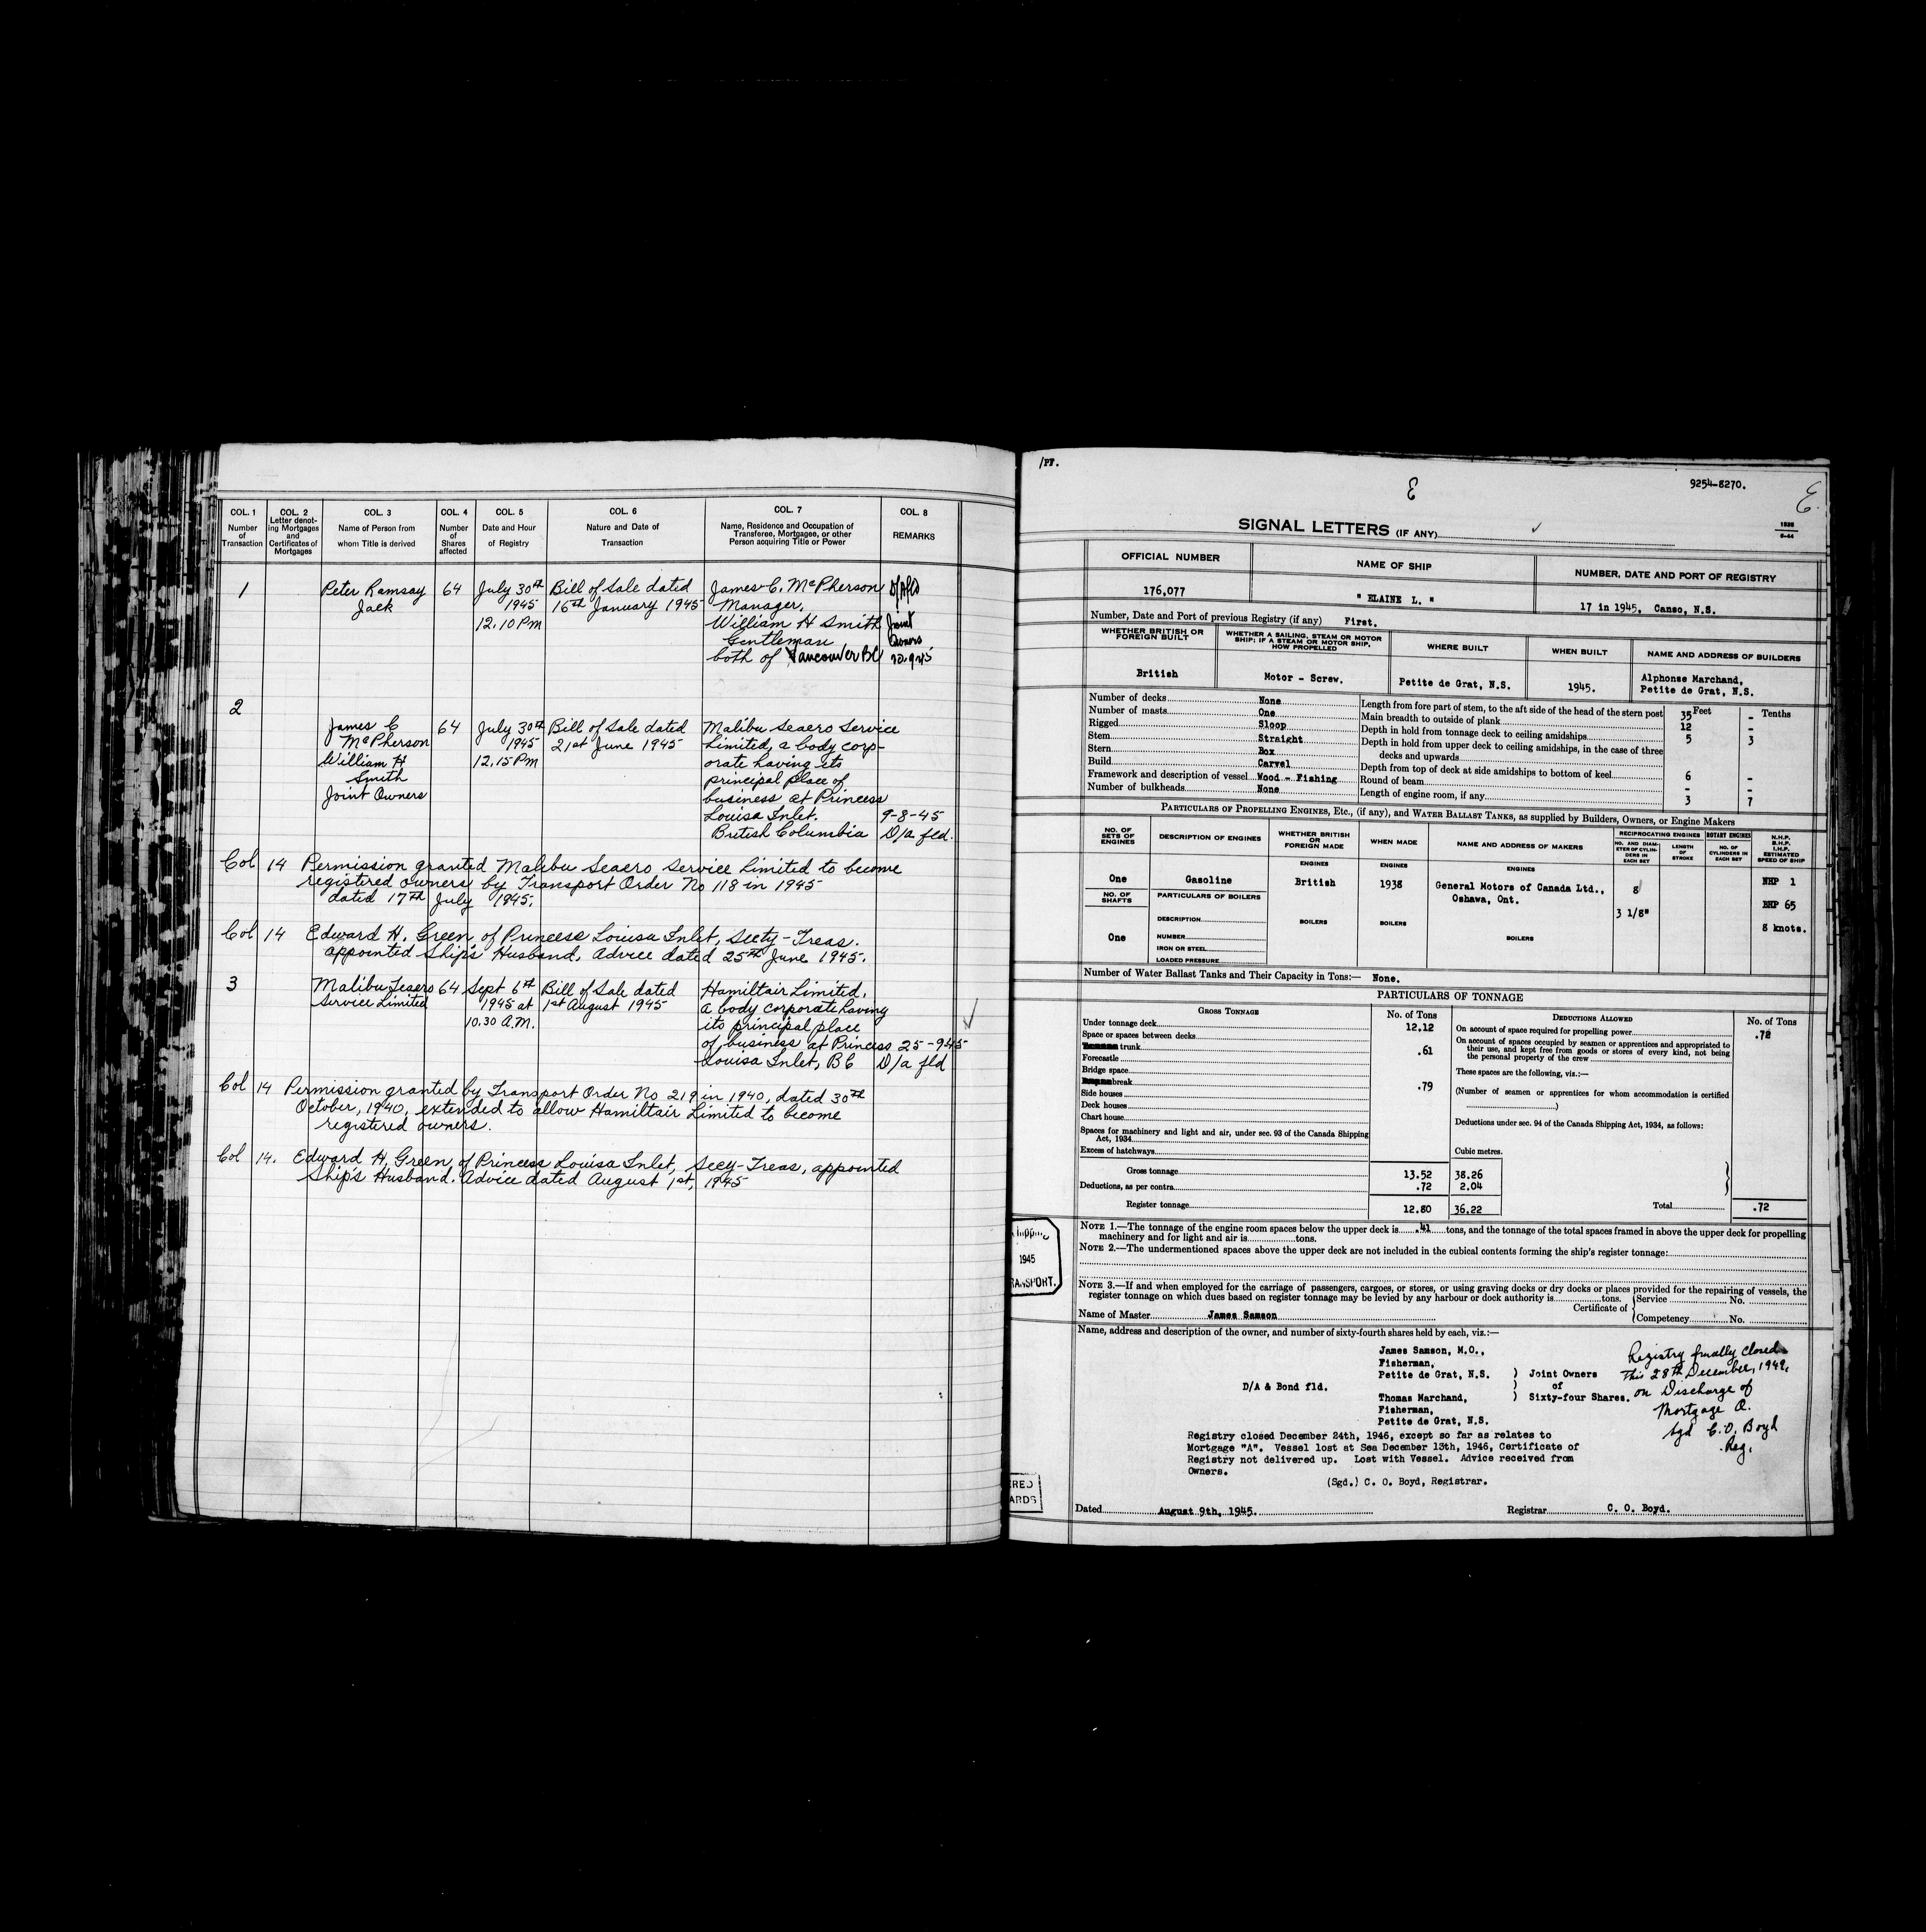 COL. 1
Number
of
Transaction
COL. 2
Letter denot-
ing Mortgages
and
Certificates of
Mortgages
COL. 3
Name of Person from
whom Title is derived
COL. 4
Number
of
Shares
affected
COL. 5
Date and Hour
of Registry
COL. 6
Nature and Date of
Transaction
COL. 7
Name, Residence and Occupation of
Transferee, Mortgagee, or other
Person acquiring Title or Power
COL. 8
REMARKS
1
Peter Ramsay
Jack
64
July 30th
1945
12.10 PM
Bill of Sale dated
16th January 1945
James C. McPherson
Manager.
William H Smith
Gentleman
both of Vancouver BC
Joint
Owners
2
James C
McPherson
William H
Smith
Joint Owners
64
July 30th
1945
12.15 PM
Bill of Sale dated
21st June 1945
Malibu Seaero Service
Limited, a body corp-
orate having its
principal place of
business at Princess
Louisa Inlet.
British Columbia
9-8-45
D/a fld.
Col 14 Permission granted Malibu Seaero Service Limited to become
registered owners by Transport Order No 118 in 1945
dated 17th July 1945.
Col 14 Edward H. Green of Princess Louisa Inlet, Secty-Treas.
appointed Ship's Husband. Advice dated 25th June 1945.
3
Malibu Seaero
Service Limited
64
Sept 6th
1945 at
10.30 A.M.
Bill of Sale dated
1st August 1945
Hamiltair Limited,
a body corporate having
its principal place
of business at Princess
Louisa Inlet, BC
25-9-45
D/a fld
Col 14 Permission granted by Transport Order No 219 in 1940, dated 30th
October, 1940, extended to allow Hamiltair Limited to become
registered owners.
Col 14. Edward H. Green, of Princess Louisa Inlet, Secy-Treas, appointed
Ship's Husband. Advice dated August 1st, 1945
/PT.
E
9254-8270.
E.
SIGNAL LETTERS (IF ANY)
OFFICIAL NUMBER
NAME OF SHIP
NUMBER, DATE AND PORT OF REGISTRY
176,077
" ELAINE L. "
17 in 1945, Canso, N.S.
Number, Date and Port of previous Registry (if any) First.
WHETHER BRITISH OR
FOREIGN BUILT
WHETHER A SAILING, STEAM OR MOTOR
SHIP; IF A STEAM OR MOTOR SHIP,
HOW PROPELLED
WHERE BUILT
WHEN BUILT
NAME AND ADDRESS OF BUILDERS
British
Motor - Screw.
Petite de Grat, N.S.
1945.
Alphonse Marchand,
Petite de Grat, N.S.
Number of decks None
Number of masts One
Rigged Sloop
Stem Straight
Stern Box
Build Carvel
Framework and description of vessel Wood - Fishing
Number of bulkheads None
Feet Tenths
Length from fore part of stem, to the aft side of the head of the stern post 35 -
Main breadth to outside of plank 12 -
Depth in hold from tonnage deck to ceiling amidships 5 3
Depth in hold from upper deck to ceiling amidships, in the case of three
decks and upwards
Depth from top of deck at side amidships to bottom of keel 6 -
Round of beam - -
Length of engine room, if any 3 7
PARTICULARS OF PROPELLING ENGINES, ETC., (if any), and WATER BALLAST TANKS, as supplied by Builders, Owners, or Engine Makers
NO. OF
SETS OF
ENGINES
DESCRIPTION OF ENGINES
WHETHER BRITISH
OR
FOREIGN MADE
WHEN MADE
NAME AND ADDRESS OF MAKERS
RECIPROCATING ENGINES
NO. AND DIAM-
ETER OF CYLIN-
DERS IN
EACH SET
LENGTH
OF
STROKE
ROTARY ENGINES
NO. OF
CYLINDERS IN
EACH SET
N.H.P.
B.H.P.
I.H.P.
ESTIMATED
SPEED OF SHIP
ENGINES
ENGINES
ENGINES
One
Gasoline
British
1938
General Motors of Canada Ltd.,
Oshawa, Ont.
8
3 1/8"
NHP 1
BHP 65
8 knots.
NO. OF
SHAFTS
One
PARTICULARS OF BOILERS
DESCRIPTION
NUMBER
IRON OR STEEL
LOADED PRESSURE
BOILERS
BOILERS
BOILERS
Number of Water Ballast Tanks and Their Capacity in Tons:— None.
PARTICULARS OF TONNAGE
GROSS TONNAGE
No. of Tons
DEDUCTIONS ALLOWED
No. of Tons
Under tonnage deck 12.12
Space or spaces between decks
trunk .61
Forecastle
Bridge space
break .79
Side houses
Deck houses
Chart house
Spaces for machinery and light and air, under sec. 93 of the Canada Shipping
Act, 1934
Excess of hatchways
Cubic metres.
Gross tonnage 13.52 38.26
Deductions, as per contra .72 2.04
Register tonnage 12.80 36.22
On account of space required for propelling power .72
On account of spaces occupied by seamen or apprentices and appropriated to
their use, and kept free from goods or stores of every kind, not being
the personal property of the crew
These spaces are the following, viz.:—
(Number of seamen or apprentices for whom accommodation is certified
)
Deductions under sec. 94 of the Canada Shipping Act, 1934, as follows:
Total .72
NOTE 1.—The tonnage of the engine room spaces below the upper deck is .41 tons, and the tonnage of the total spaces framed in above the upper deck for propelling
machinery and for light and air is tons.
NOTE 2.—The undermentioned spaces above the upper deck are not included in the cubical contents forming the ship's register tonnage:
NOTE 3.—If and when employed for the carriage of passengers, cargoes, or stores, or using graving docks or dry docks or places provided for the repairing of vessels, the
register tonnage on which dues based on register tonnage may be levied by any harbour or dock authority is tons.
Certificate of
Service No.
Competency No.
Name of Master James Samson
Name, address and description of the owner, and number of sixty-fourth shares held by each, viz.:—
James Samson, M.O.,
Fisherman,
Petite de Grat, N.S. ) Joint Owners
D/A & Bond fld. ) of
Thomas Marchand, ) Sixty-four Shares.
Fisherman,
Petite de Grat, N.S.
Registry finally closed
this 28th December, 1949,
on Discharge of
Mortgage A.
Sgd C. O. Boyd
Reg.
Registry closed December 24th, 1946, except so far as relates to
Mortgage "A". Vessel lost at Sea December 13th, 1946, Certificate of
Registry not delivered up. Lost with Vessel. Advice received from
Owners.
(Sgd.) C. O. Boyd, Registrar.
Dated August 9th, 1945. Registrar C. O. Boyd.
1945